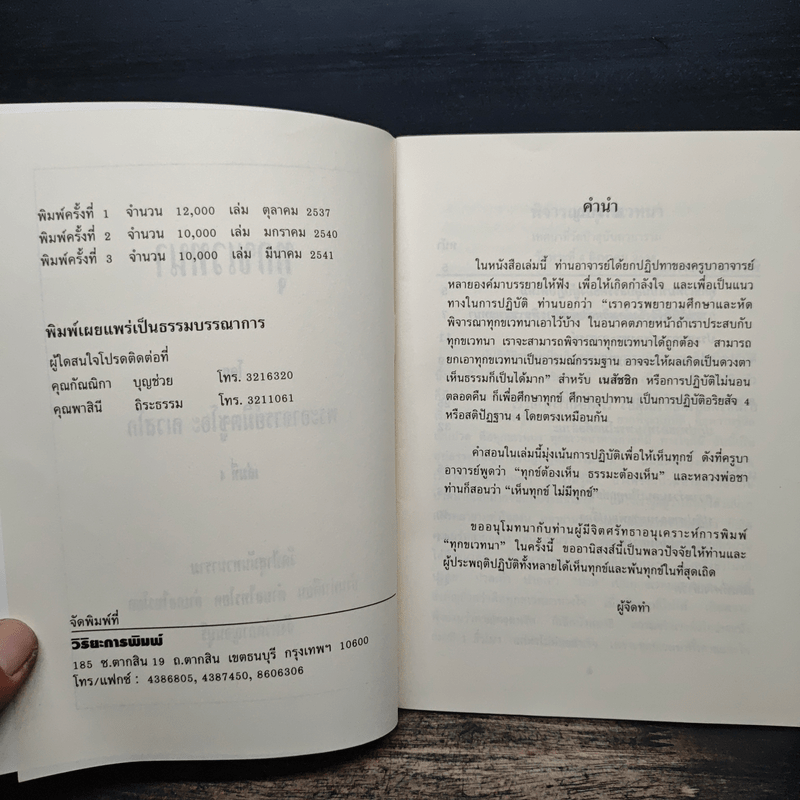 พิมพ์ครั้งที่ 1 จำนวน 12,000 เล่ม ตุลาคม 2537
พิมพ์ครั้งที่ 2 จำนวน 10,000 เล่ม มกราคม 2540
พิมพ์ครั้งที่ 3 จำนวน 10,000 เล่ม มีนาคม 2541
พิมพ์เผยแพร่เป็นธรรมบรรณาการ
ผู้ใดสนใจโปรดติดต่อที่
คุณกัณณิกา บุญช่วย โทร. 3216320
คุณพาสินี ถิระธรรม โทร. 3211061
จัดพิมพ์ที่
วิริยะการพิมพ์
185 ซ.ตากสิน 19 ถ.ตากสิน เขตธนบุรี กรุงเทพฯ 10600
โทร/แฟกซ์ : 4386805, 4387450, 8606306
คำนำ
ในหนังสือเล่มนี้ ท่านอาจารย์ได้ยกปฏิปทาของครูบาอาจารย์
หลายองค์มาบรรยายให้ฟัง เพื่อให้เกิดกำลังใจ และเพื่อเป็นแนว
ทางในการปฏิบัติ ท่านบอกว่า “เราควรพยายามศึกษาและหัด
พิจารณาทุกขเวทนาเอาไว้บ้าง ในอนาคตภายหน้าถ้าเราประสบกับ
ทุกขเวทนา เราจะสามารถพิจารณาทุกขเวทนาได้ถูกต้อง สามารถ
ยกเอาทุกขเวทนาเป็นอารมณ์กรรมฐาน อาจจะให้ผลเกิดเป็นดวงตา
เห็นธรรมก็เป็นได้มาก” สำหรับ เนสัชชิก หรือการปฏิบัติไม่นอน
ตลอดคืน ก็เพื่อศึกษาทุกข์ ศึกษาอุปาทาน เป็นการปฏิบัติอริยสัจ 4
หรือสติปัฏฐาน 4 โดยตรงเหมือนกัน
คำสอนในเล่มนี้มุ่งเน้นการปฏิบัติเพื่อให้เห็นทุกข์ ดังที่ครูบา
อาจารย์พูดว่า “ทุกข์ต้องเห็น ธรรมะต้องเห็น” และหลวงพ่อชา
ท่านก็สอนว่า “เห็นทุกข์ ไม่มีทุกข์”
ขออนุโมทนากับท่านผู้มีจิตศรัทธาอนุเคราะห์การพิมพ์
“ทุกขเวทนา” ในครั้งนี้ ขออานิสงส์นี้เป็นพลวปัจจัยให้ท่านและ
ผู้ประพฤติปฏิบัติทั้งหลายได้เห็นทุกข์และพ้นทุกข์ในที่สุดเถิด
ผู้จัดทำ